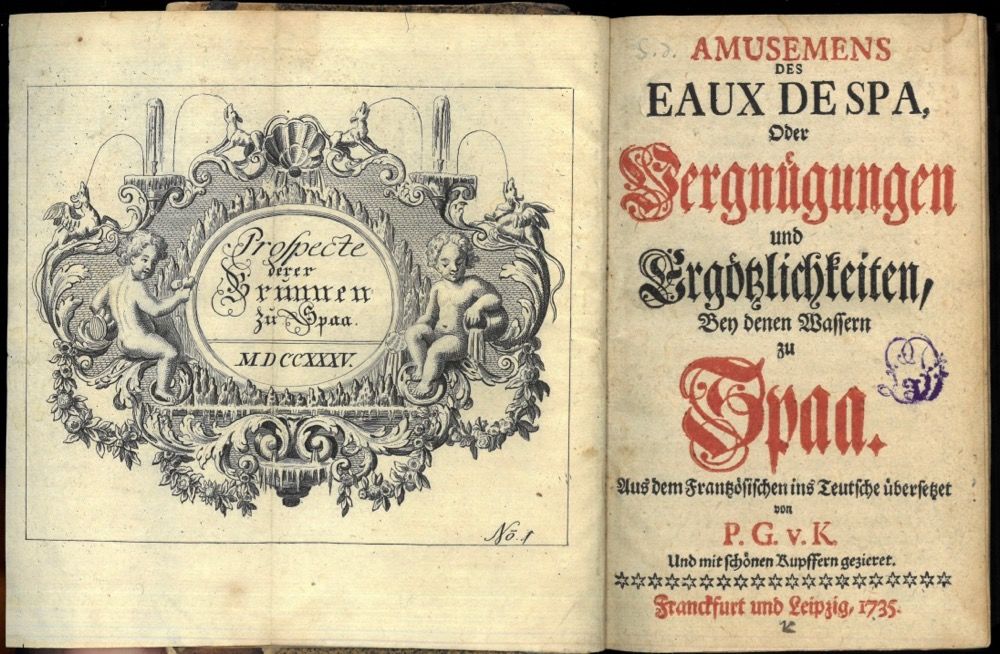 Prospecte
derer
Brunnen
zu Spaa.
MDCCXXXV.
No. 1
AMUSEMENS
DES
EAUX DE SPA,
Oder
Vergnügungen
und
Ergötzlichkeiten,
Bey denen Wassern
zu
Spaa.
Aus dem Frantzösischen ins Teutsche übersetzet
von
P. G. v. K.
Und mit schönen Kupffern gezieret.
Franckfurt und Leipzig, 1735.